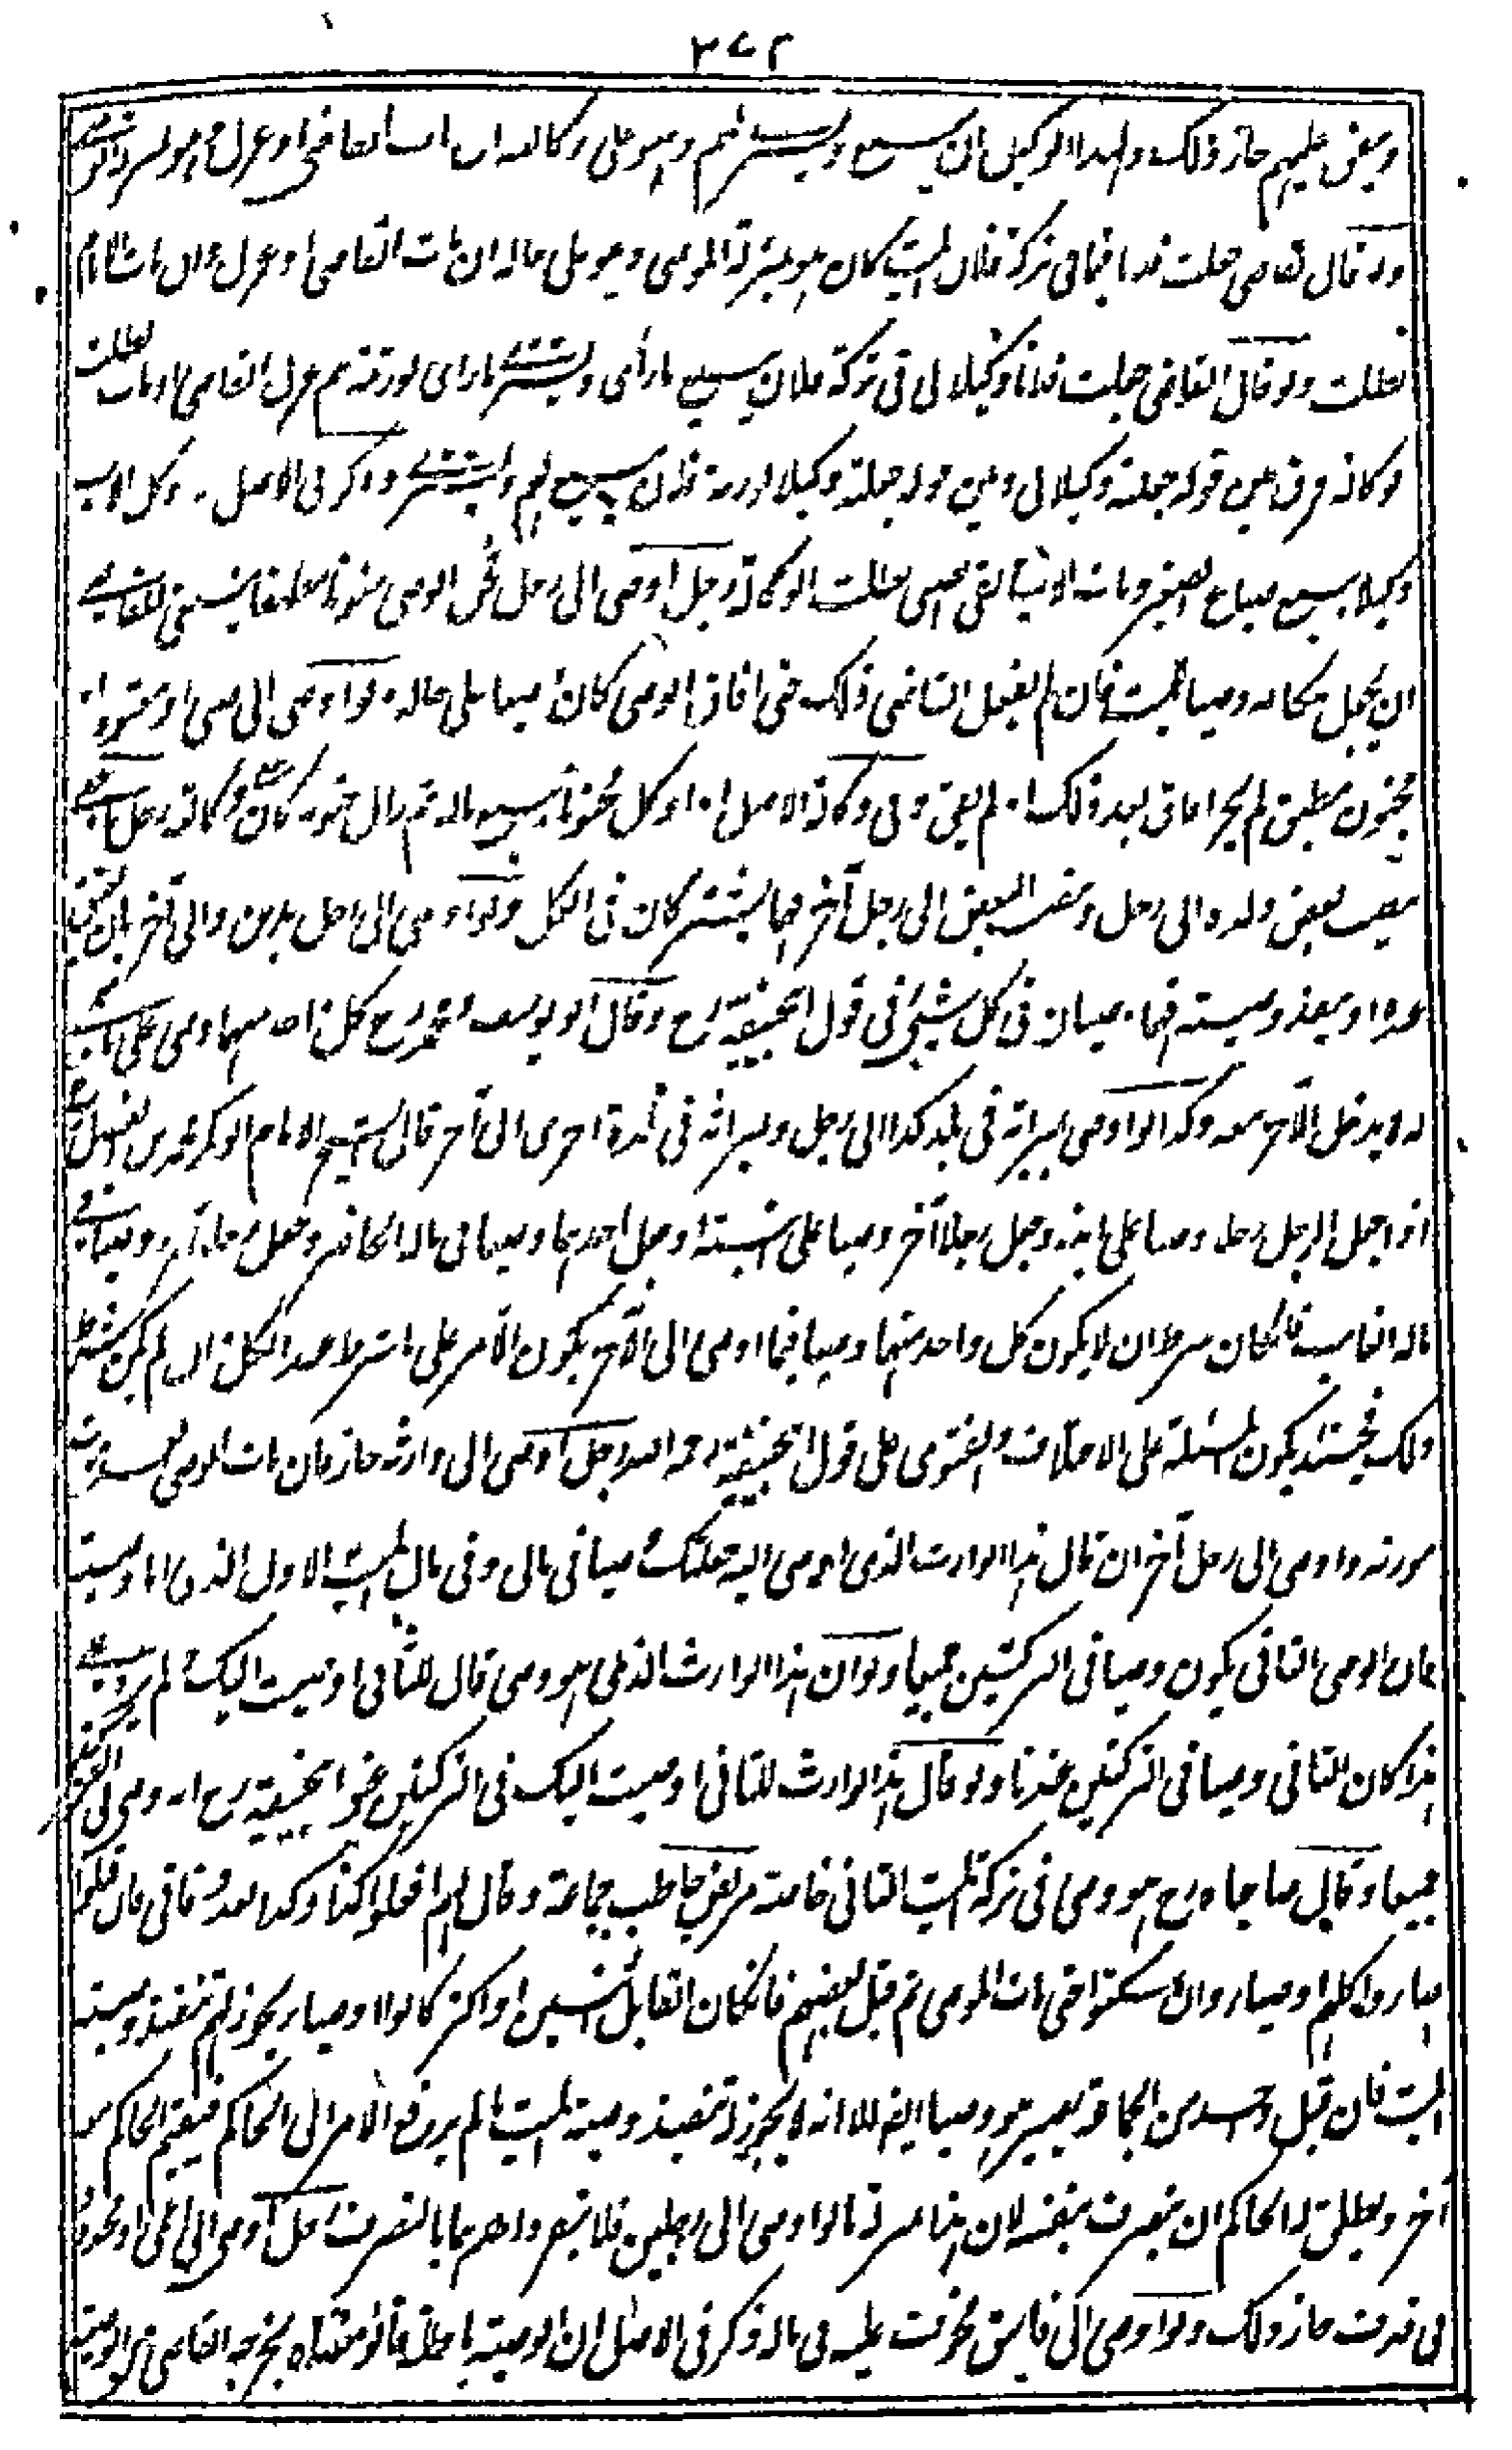 ٣٧٢
وينفق عليهم جاز ذلك ولهذا الوكيل ان يبيع ويشتري لهم وهو على وكالته ان مات القاضي او عزل
ولو قال القاضي جعلت فلانا قيما في تركة فلان الميت كان هو بمنزلة الوصي وهو على حاله ان مات القاضي او عزل وان مات
بطلت ولو قال القاضي جعلت فلانا وكيلا لي في تركة فلان يبيع ما رأى ويشتري ما رأى لورثته ثم عزل القاضي او مات بطلت
وكالته فرق بين قوله جعلته وكيلا لي وبين قوله جعلته وكيلا لورثة فلان يبيع لهم ويشتري وذكر في الاصل وكل الاب
وكيلا ببيع متاع الصغير ومات الاب بقي الصبي بطلت الوكالة رجل اوصى الى رجل فجن الوصي جنونا مطبقا ينبغي للقاضي
ان يجعل مكانه وصيا للميت فان لم يفعل القاضي ذلك حتى افاق الوصي كان وصيا على حاله ولو اوصى الى صبي او معتوه او
مجنون مطبق لم يجز افاق بعد ذلك او لم يفق وفي وكالة الاصل اذا وكل مجنونا ببيع ماله ثم زال جنونه كان على وكالته رجل
بنصيب بعض ولده الى رجل ونصيب البعض الى رجل آخر فهما يشتركان في الكل ولو اوصى الى رجل بدين والى آخر بان يعتق
عبده او ينفذ وصيته فهما وصيان في كل شيء في قول ابي حنيفة رح وقال ابو يوسف ومحمد رح كل واحد منهما وصي على ما
له لا يدخل الآخر معه وكذا لو اوصى بميراثه في بلد كذا الى رجل وبميراثه في بلدة اخرى الى آخر قال الشيخ الامام ابو بكر محمد بن الفضل
اذا جعل الرجل رجلا وصيا على ابنه وجعل رجلا آخر وصيا على ابنته او جعل احدهما وصيا في ماله الحاضر وجعل رجلا آخر وصيا في
ماله الغائب فان كان شرط ان لا يكون كل واحد منهما وصيا فيما اوصى الى الآخر يكون الامر على ما شرط عند الكل وان لم يكن شرط
ذلك فحينئذ يكون المسئلة على الاختلاف والفتوى على قول ابي حنيفة رحمه الله رجل اوصى الى وارثه جاز فان مات الوصي بعد
مورثه واوصى الى رجل آخر ان قال هذا الوارث الذي اوصى اليه جعلتك وصيا في مالي وفي مال الميت الاول الذي انا وصيه
فان الوصي الثاني يكون وصيا في التركتين جميعا ولو ان هذا الوارث الذي هو وصي قال للثاني اوصيت اليك لم يزد على
هذا كان للثاني وصيا في التركتين عندنا ولو قال هذا الوارث للثاني اوصيت اليك في التركتين عن ابي حنيفة رح انه وصي في التركتين
جميعا وقال صاحباه رح هو وصي في تركة الميت الثاني خاصة مريض خاطب جماعة وقال لهم افعلوا كذا وكذا بعد وفاتي فان قبلوا
صاروا كلهم اوصياء وان سكتوا حتى مات الموصي ثم قبل بعضهم فان كان القابل اثنين او اكثر كانوا اوصياء يجوز لهم تنفيذ وصية
الميت فان قبل واحد من الجماعة يصير هو وصيا ايضا الا انه لا يجوز له تنفيذ وصية الميت ما لم يرفع الامر الى الحاكم فيقيم الحاكم معه
آخر ويطلق له الحاكم ان يتصرف بنفسه لان هذا بمنزلة ما لو اوصى الى رجلين فلا ينفرد احدهما بالتصرف رجل اوصى الى اعمى او محدود
في قذف جاز ذلك ولو اوصى الى فاسق مخوف عليه في ماله ذكر في الاصل ان الوصية باطلة قالوا معناه يخرجه القاضي عن الوصية